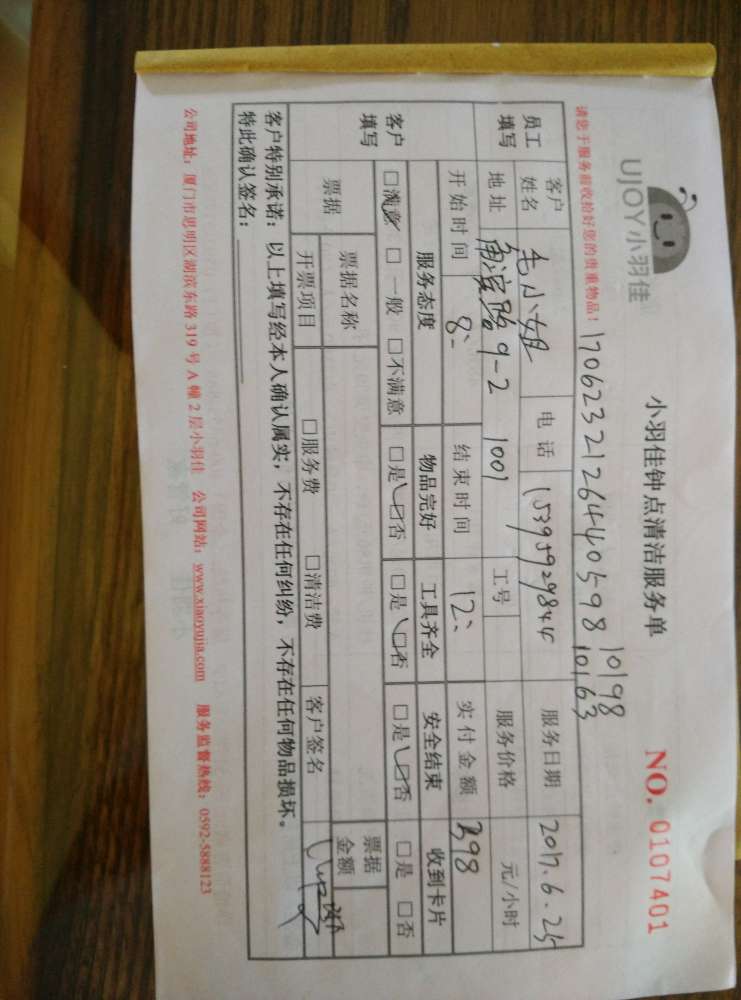 UJOY小羽佳
小羽佳钟点清洁服务单
NO. 0107401
170623212644 0598 10198
10163
请您于服务前收拾好您的贵重物品！
员工填写 客户姓名 毛小姐 电话 15395929844 服务日期 2017.6.25
地址 9-2 1001 工号 服务价格 元/小时
开始时间 8: 结束时间 12: 实付金额 398
客户填写 服务态度 物品完好 工具齐全 安全结束 收到卡片
□满意 □一般 □不满意 □是 □否 □是 □否 □是 □否 □是 □否
票据 票据名称 票据金额
开票项目 □服务费 □清洁费 客户签名
客户特别承诺：以上填写经本人确认属实，不存在任何纠纷，不存在任何物品损坏。
特此确认签名：
公司地址：厦门市思明区湖滨东路 319 号 A 幢 2 层小羽佳 公司网站：www.xiaoyujia.com 服务监督热线：0592-5888123